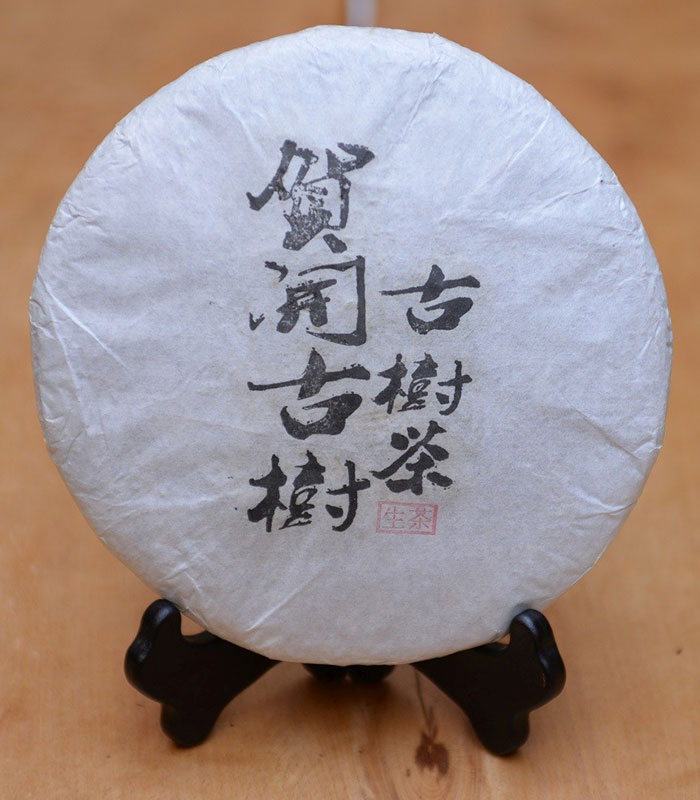 古樹茶
賀開古樹
生茶